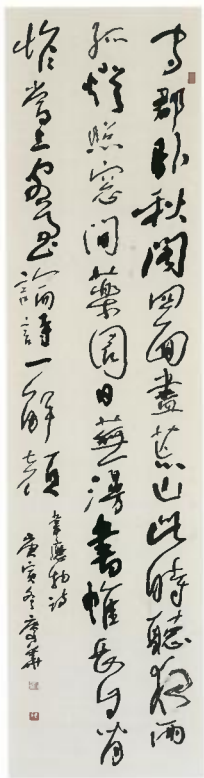 守郡卧秋閣四面盡荒山此時聽夜雨
孤燈照窓間藥園日蕪沒書帷長自閒
惟當上客至論詩一解顏
韋應物詩
庚寅冬